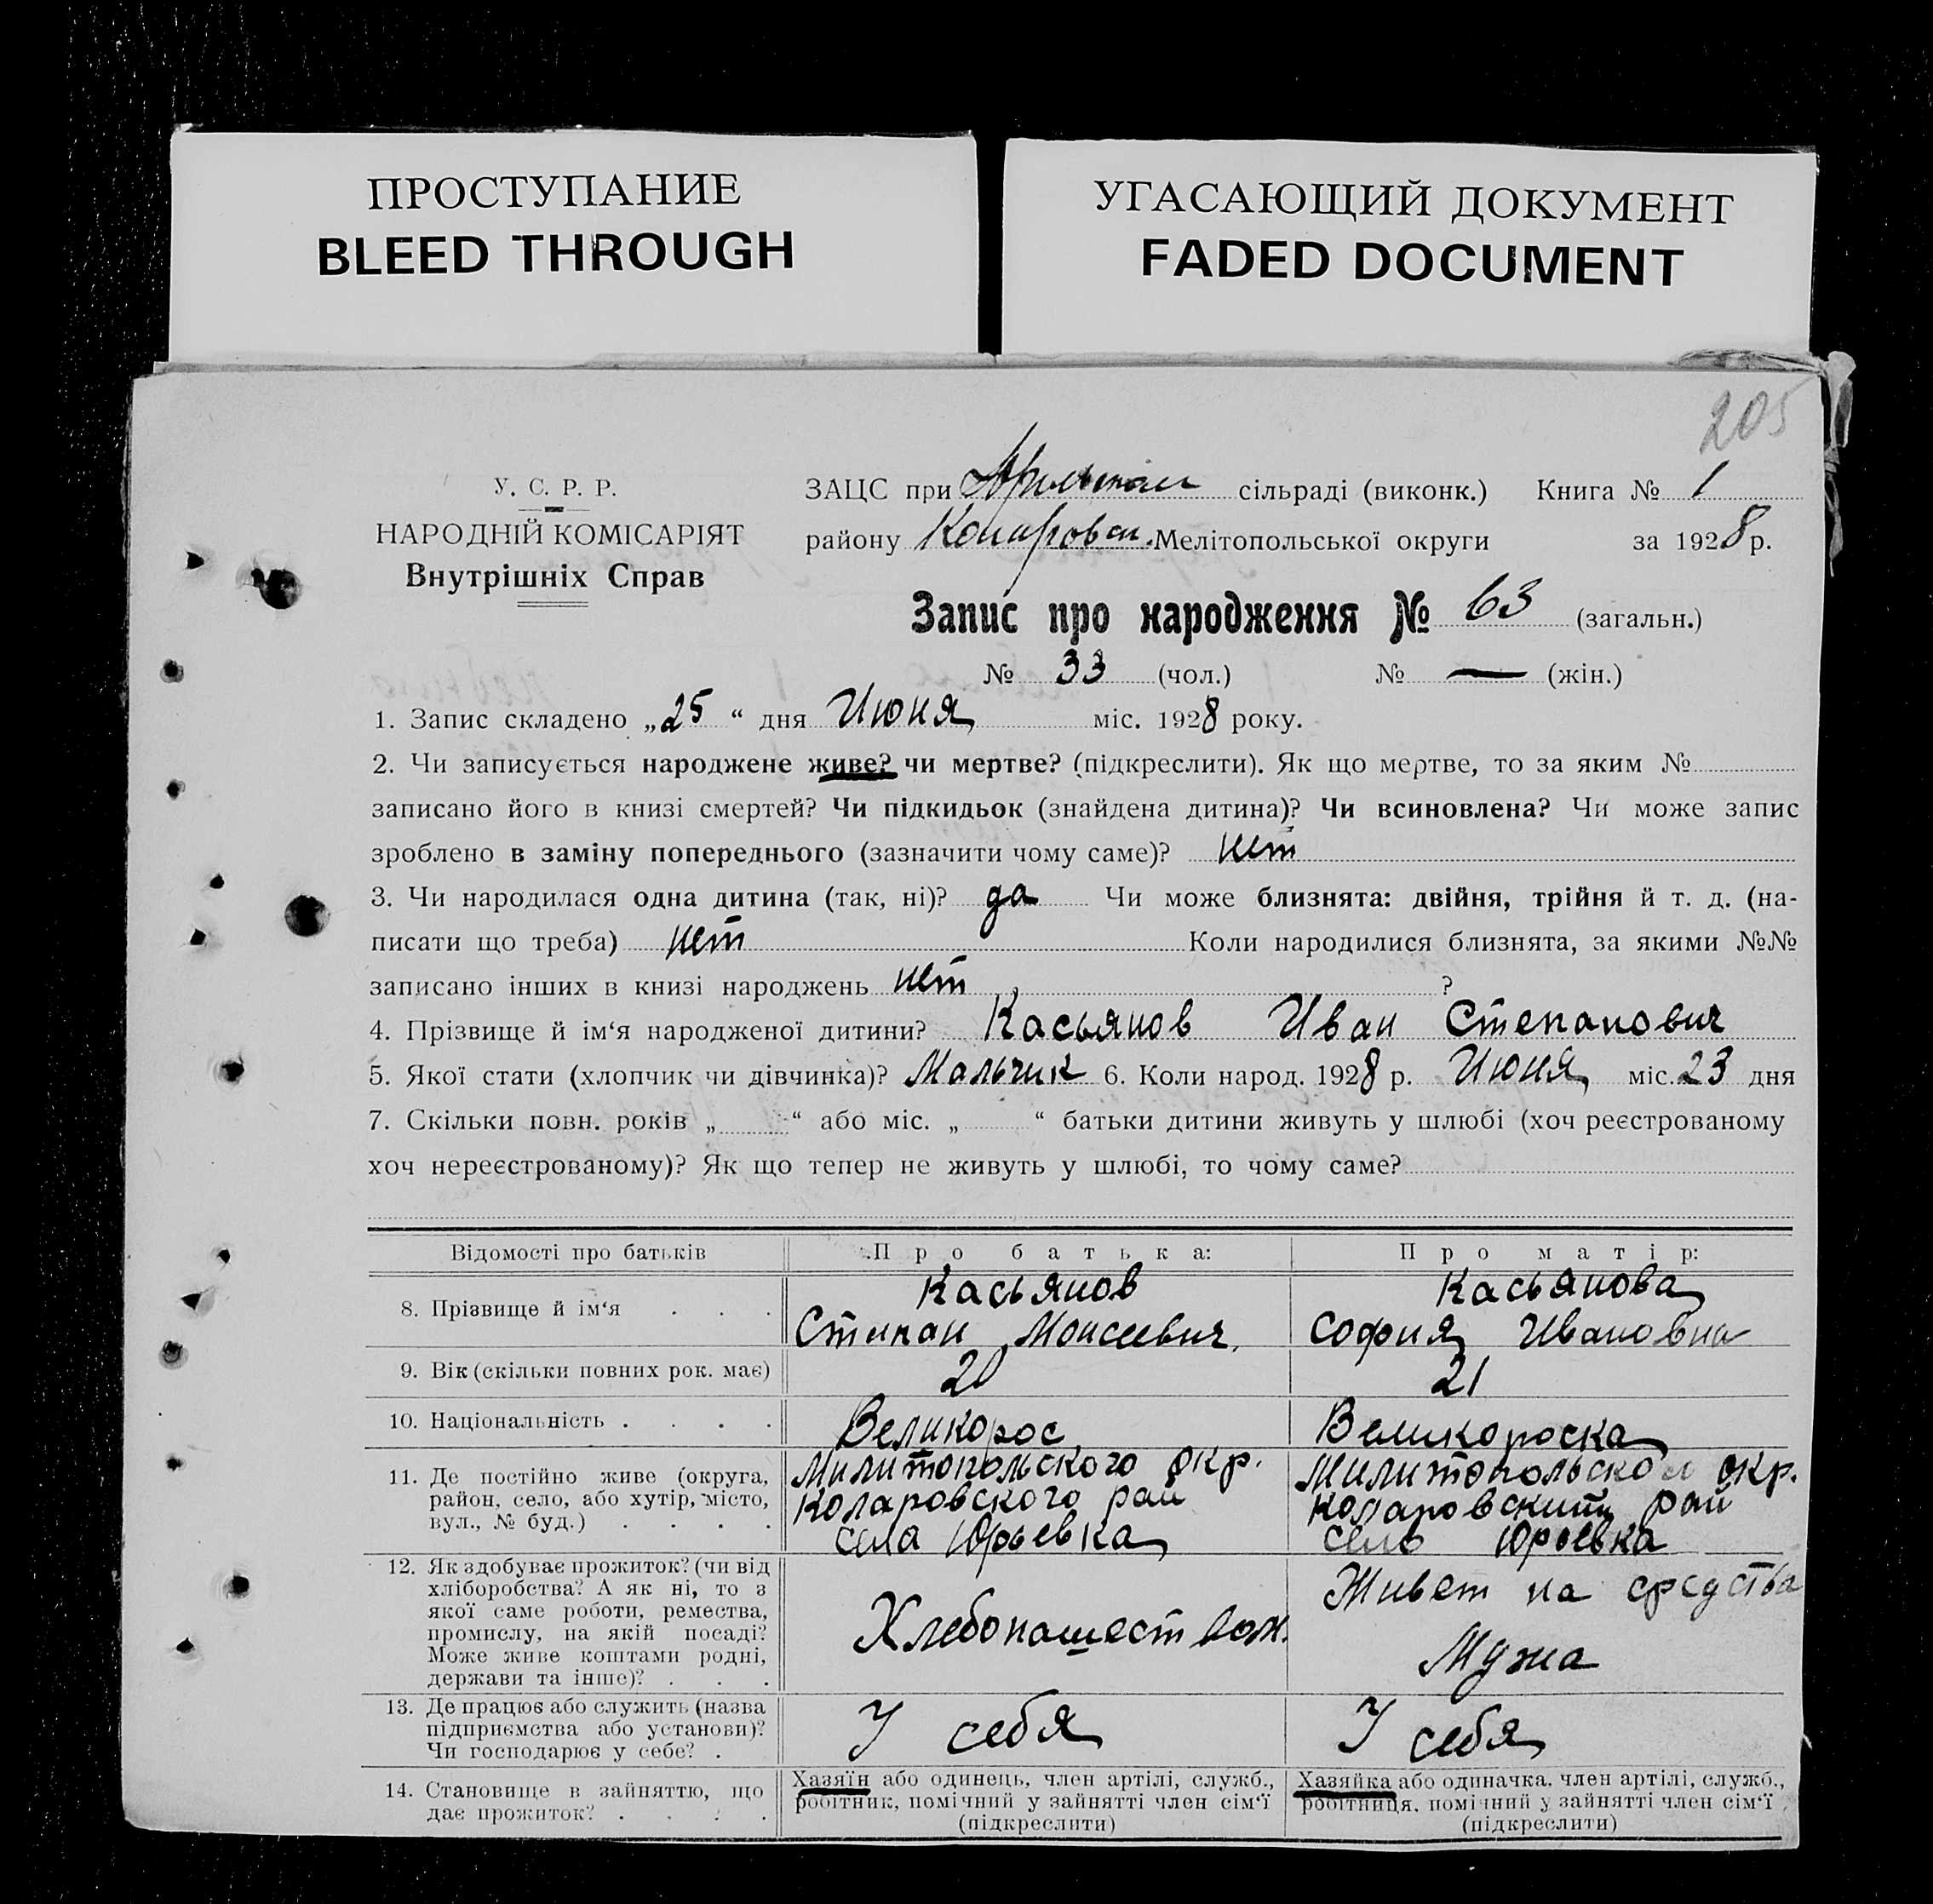 ПРОСТУПАНИЕ
BLEED THROUGH
УГАСАЮЩИЙ ДОКУМЕНТ
FADED DOCUMENT
205
У. С. Р. Р.
НАРОДНІЙ КОМІСАРІЯТ
Внутрішніх Справ
ЗАЦС при сільраді (виконк.) Книга № 1
району Мелітопольської округи за 1928 р.
Запис про народження № 63 (загальн.)
№ 33 (чол.) № — (жін.)
1. Запис складено „25“ дня Июня міс. 1928 року.
2. Чи записується народжене живе? чи мертве? (підкреслити). Як що мертве, то за яким №
записано його в книзі смертей? Чи підкидьок (знайдена дитина)? Чи всиновлена? Чи може запис
зроблено в заміну попереднього (зазначити чому саме)? нет
3. Чи народилася одна дитина (так, ні)? да Чи може близнята: двійня, трійня й т. д. (на-
писати що треба) нет Коли народилися близнята, за якими №№
записано інших в книзі народжень нет ?
4. Прізвище й ім‘я народженої дитини? Касьянов Иван Степанович
5. Якої стати (хлопчик чи дівчинка)? Мальчик 6. Коли народ. 1928 р. Июня міс. 23 дня
7. Скільки повн. років „ “ або міс. „ “ батьки дитини живуть у шлюбі (хоч реєстрованому
хоч нереєстрованому)? Як що тепер не живуть у шлюбі, то чому саме?
Відомості про батьків Про батька: Про матір:
8. Прізвище й ім‘я . . .
Касьянов
Степан Моисеевич.
Касьянова
София Ивановна
9. Вік (скільки повних рок. має) 20 21
10. Національність . . . . Великорос Великороска
11. Де постійно живе (округа,
район, село, або хутір, місто,
вул., № буд.) . . . .
Милитопольского окр.
Коларовского рай
села Юрьевка
Милитопольской окр.
коларовский рай
село Юрьевка
12. Як здобуває прожиток? (чи від
хліборобства? А як ні, то з
якої саме роботи, ремества,
промислу, на якій посаді?
Може живе коштами родні,
держави та інше)? . . .
Хлебопашеством.
Живет на средства
Мужа
13. Де працює або служить (назва
підприємства або установи)?
Чи господарює у себе? .
У себя
У себя
14. Становище в зайняттю, що
дає прожиток? . . . .
Хазяїн або одинець, член артілі, служб.,
робітник, помічний у зайнятті член сім‘ї
(підкреслити)
Хазяйка або одиначка, член артілі, служб.,
робітниця, помічний у зайнятті член сім‘ї
(підкреслити)